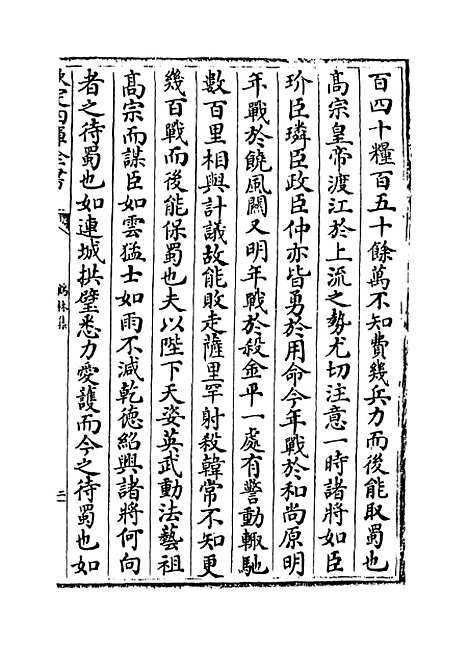 百四十糧百五十餘萬不知費幾兵力而後能取蜀也
高宗皇帝渡江於上流之勢尤切注意一時諸將如臣
玠臣璘臣政臣仲亦皆勇於用命今年戰於和尚原明
年戰於饒風關又明年戰於殺金平一處有警動輒馳
數百里相與計議故能敗走薩里罕射殺韓常不知更
幾百戰而後能保蜀也夫以陛下天姿英武動法藝祖
高宗而謀臣如雲猛士如雨不減乾德紹興諸將何向
者之待蜀也如連城拱璧悉力愛護而今之待蜀也如
欽定四庫全書
鶴林集
二